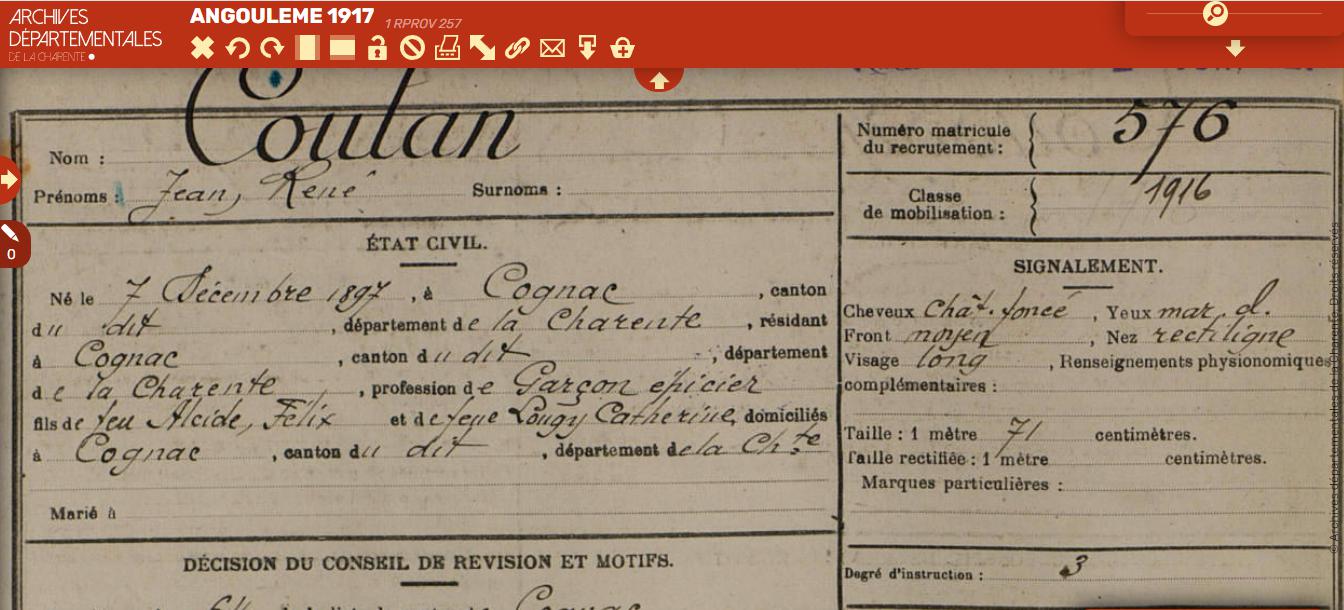 ARCHIVES
DÉPARTEMENTALES
DE LA CHARENTE
ANGOULEME 1917 1 RPROV 257
0
Coulan
Nom :
Prénoms : Jean, René Surnoms :
ÉTAT CIVIL.
Né le 7 Décembre 1897, à Cognac, canton
du dit, département de la Charente, résidant
à Cognac, canton du dit, département
de la Charente, profession de Garçon épicier
fils de feu Alcide, Félix et de feue Lougy Catherine, domiciliés
à Cognac, canton du dit, département de la Chte
Marié à
DÉCISION DU CONSEIL DE REVISION ET MOTIFS.
Cognac
Numéro matricule
du recrutement : 576
Classe
de mobilisation : 1916
SIGNALEMENT.
Cheveux chât. foncé, Yeux mar. d.
Front moyen, Nez rectiligne
Visage long, Renseignements physionomiques
complémentaires :
Taille : 1 mètre 71 centimètres.
Taille rectifiée : 1 mètre centimètres.
Marques particulières :
Degré d'instruction : 3
© Archives départementales de la Charente. Droits réservés